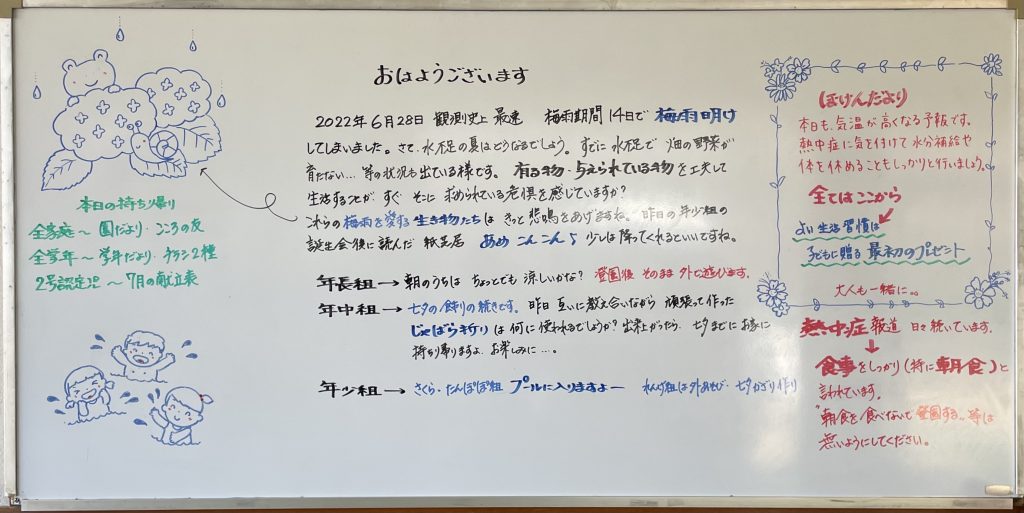 おはようございます
2022年6月28日 観測史上 最速 梅雨期間 14日で 梅雨明け
してしまいました。さて、水不足の夏はどうなるでしょう。すでに水不足で 畑の野菜が
育たない… 等の状況も出ている様です。有る物・与えられている物を工夫して
生活することが、すぐ そこに 求められている危惧を感じていますか?
これらの梅雨を愛する生き物たちは きっと悲鳴をあげますね。昨日の年少組の
誕生会後に読んだ 紙芝居 あめ こんこん♪ 少しは降ってくれるといいですね。
年長組→朝のうちは ちょっとでも 涼しいかな? 登園後 そのまま 外で遊びます。
年中組→七夕の飾りの続きです。昨日 互いに教え合いながら 頑張って作った
じゃばら折りは 何に使われるでしょうか? 出来上がったら、七夕までにお家に
持ち帰りますよ。お楽しみに…。
年少組→さくら・たんぽぽ組 プールに入りますよー れんげ組は外あそび・七夕かざり作り
本日の持ち帰り
全家庭~園だより・こころの友
全学年~学年だより・チラシ2種
2号認定児~7月の献立表
ほけんだより
本日も、気温が高くなる予報です。
熱中症に気を付けて 水分補給や
体を休めることもしっかりと行いましょう。
全てはここから
よい生活習慣は
子どもに贈る 最初のプレゼント
大人も一緒に。。
熱中症 報道 日々 続いています。
食事をしっかり(特に朝食)と
言われています。
"朝食を食べないで 登園する"等は
無いようにしてください。